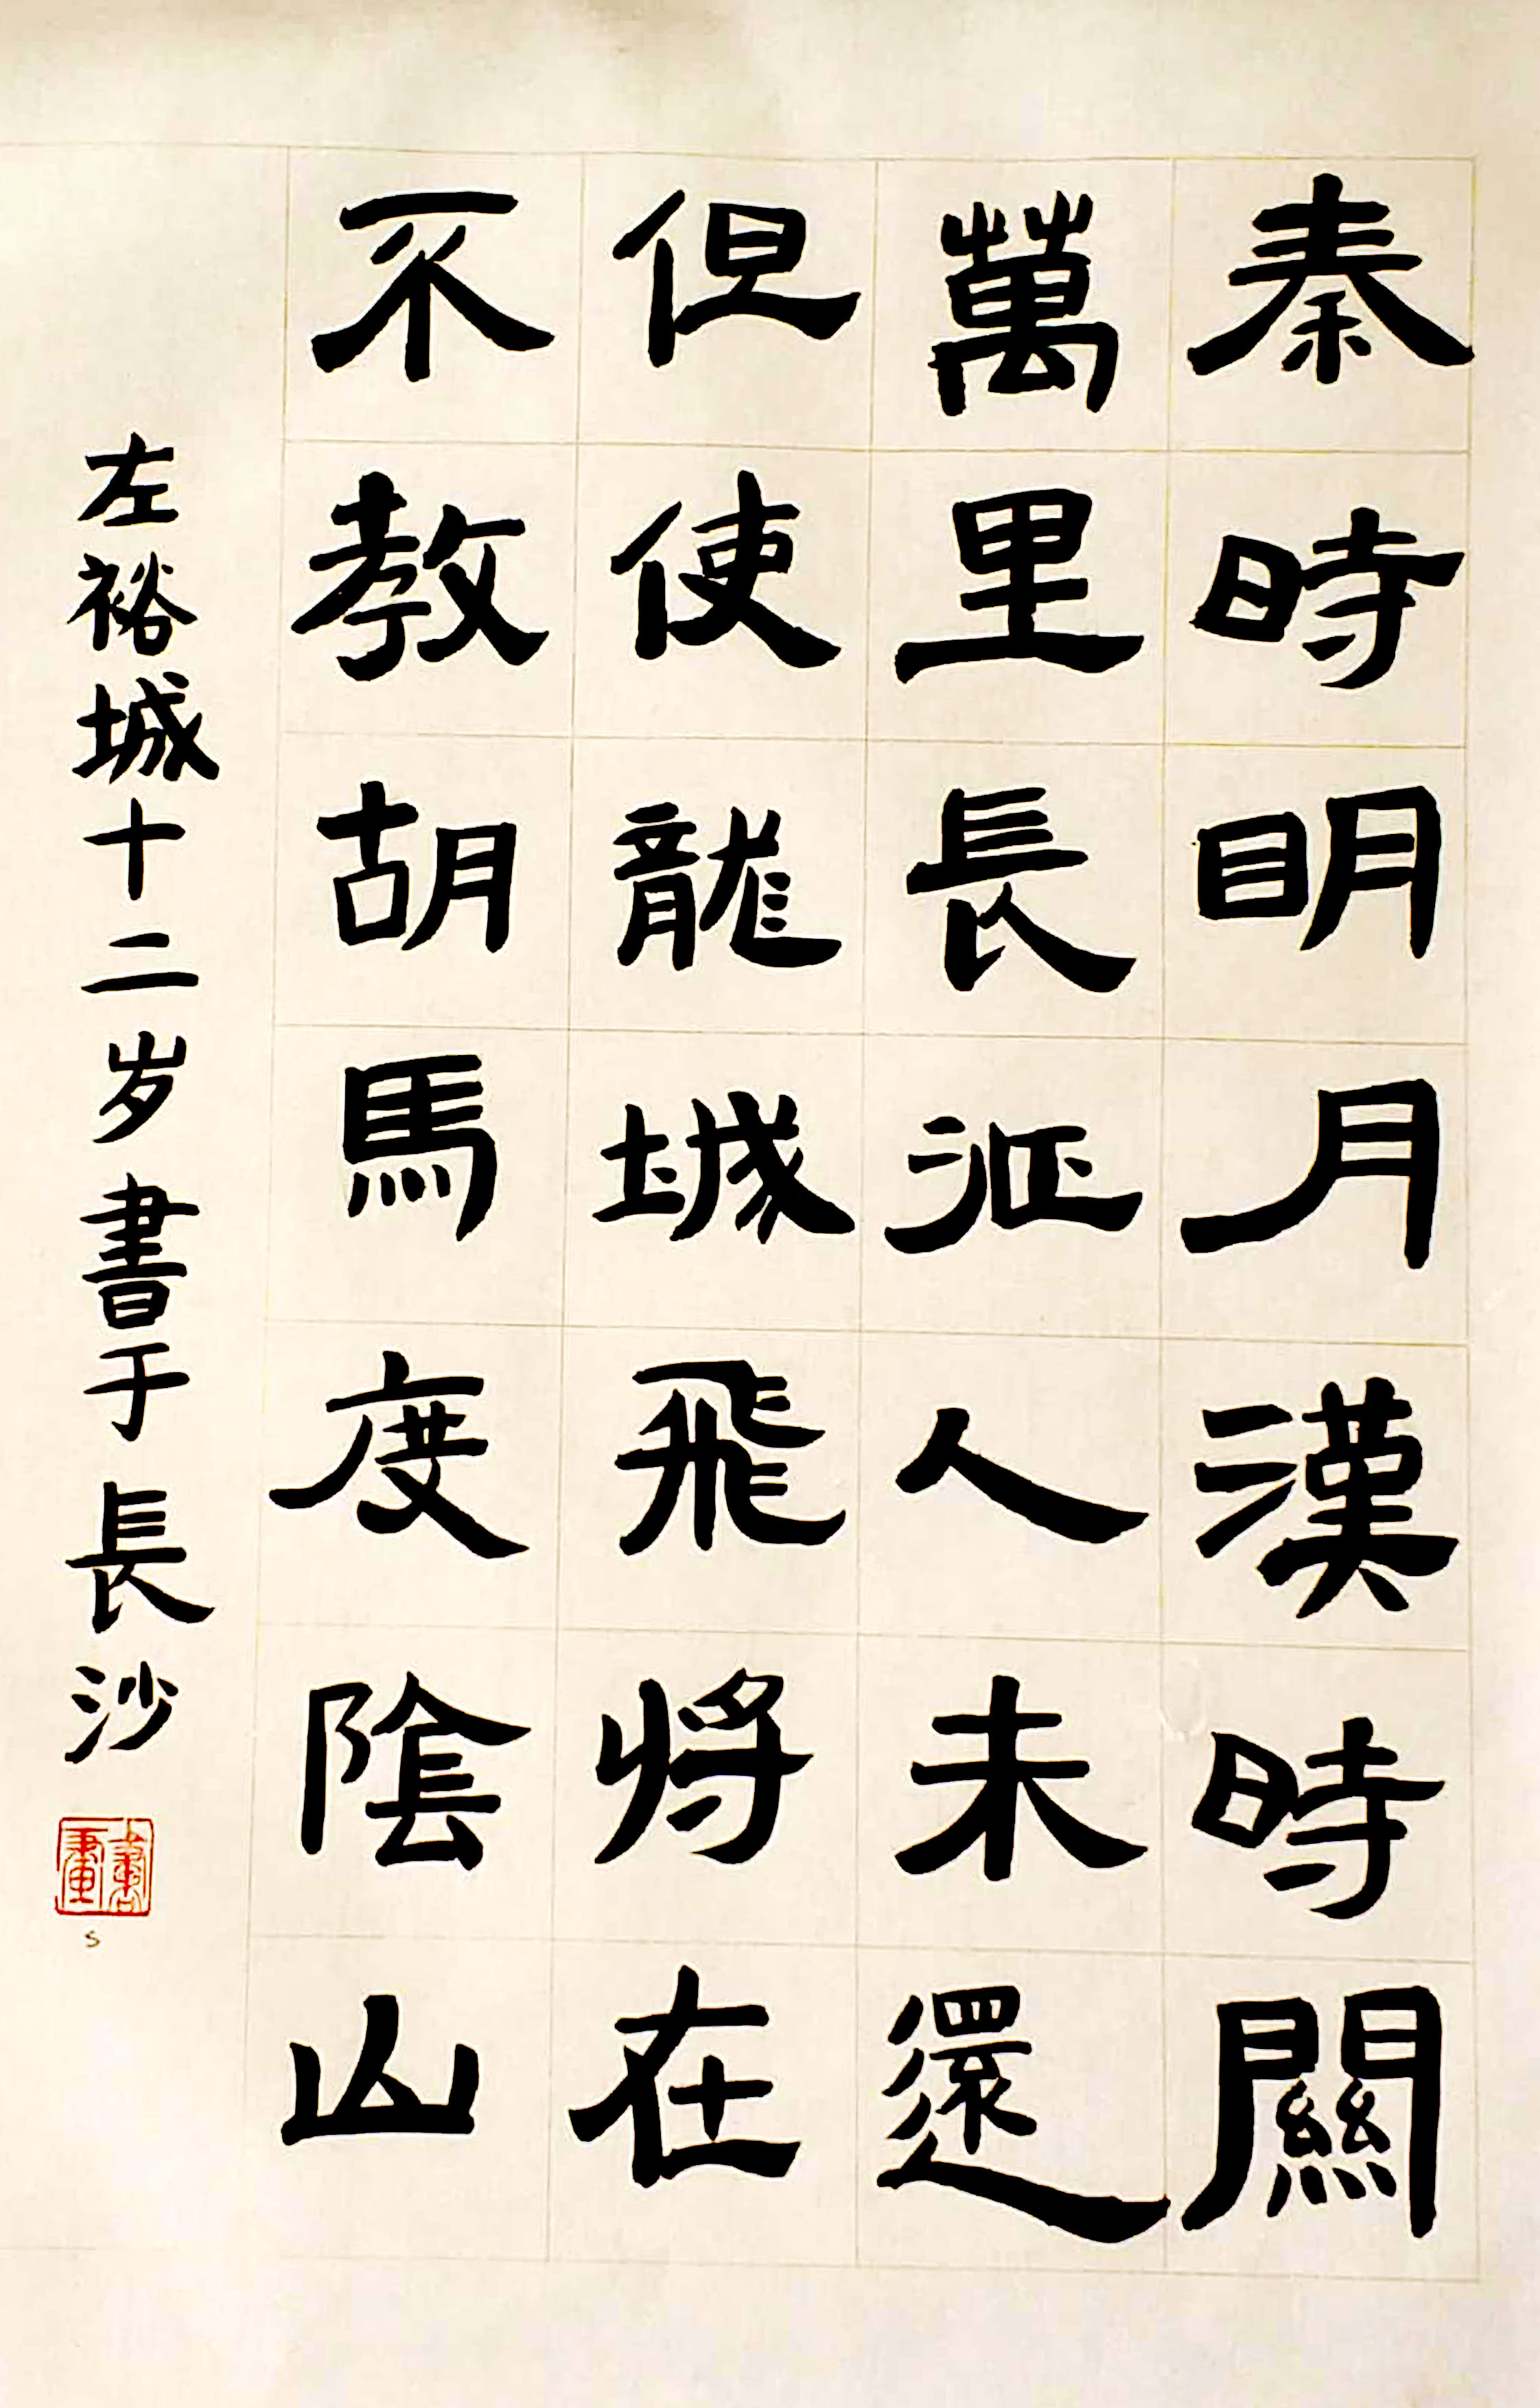 秦時明月漢時關
萬里長征人未還
但使龍城飛將在
不教胡馬度陰山
左裕城十二岁書于長沙
書畫